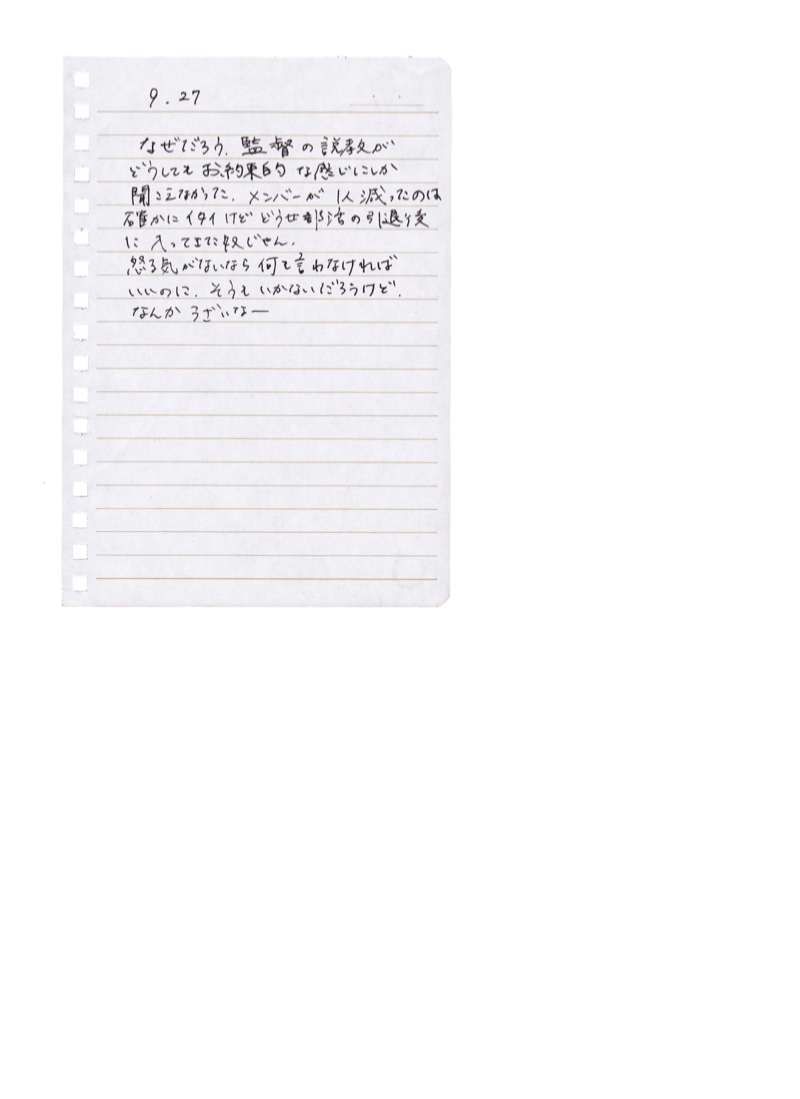 9.27
なぜだろう。監督の説教が
どうしても お約束的 な感じにしか
聞こえなかった。メンバーが 1人減ったのは
確かに イタイけど どうせ部活の引退後
に 入ってきた奴じゃん。
怒る気がないなら何も言わなければ
いいのに。そうも いかないだろうけど。
なんか うざいなー